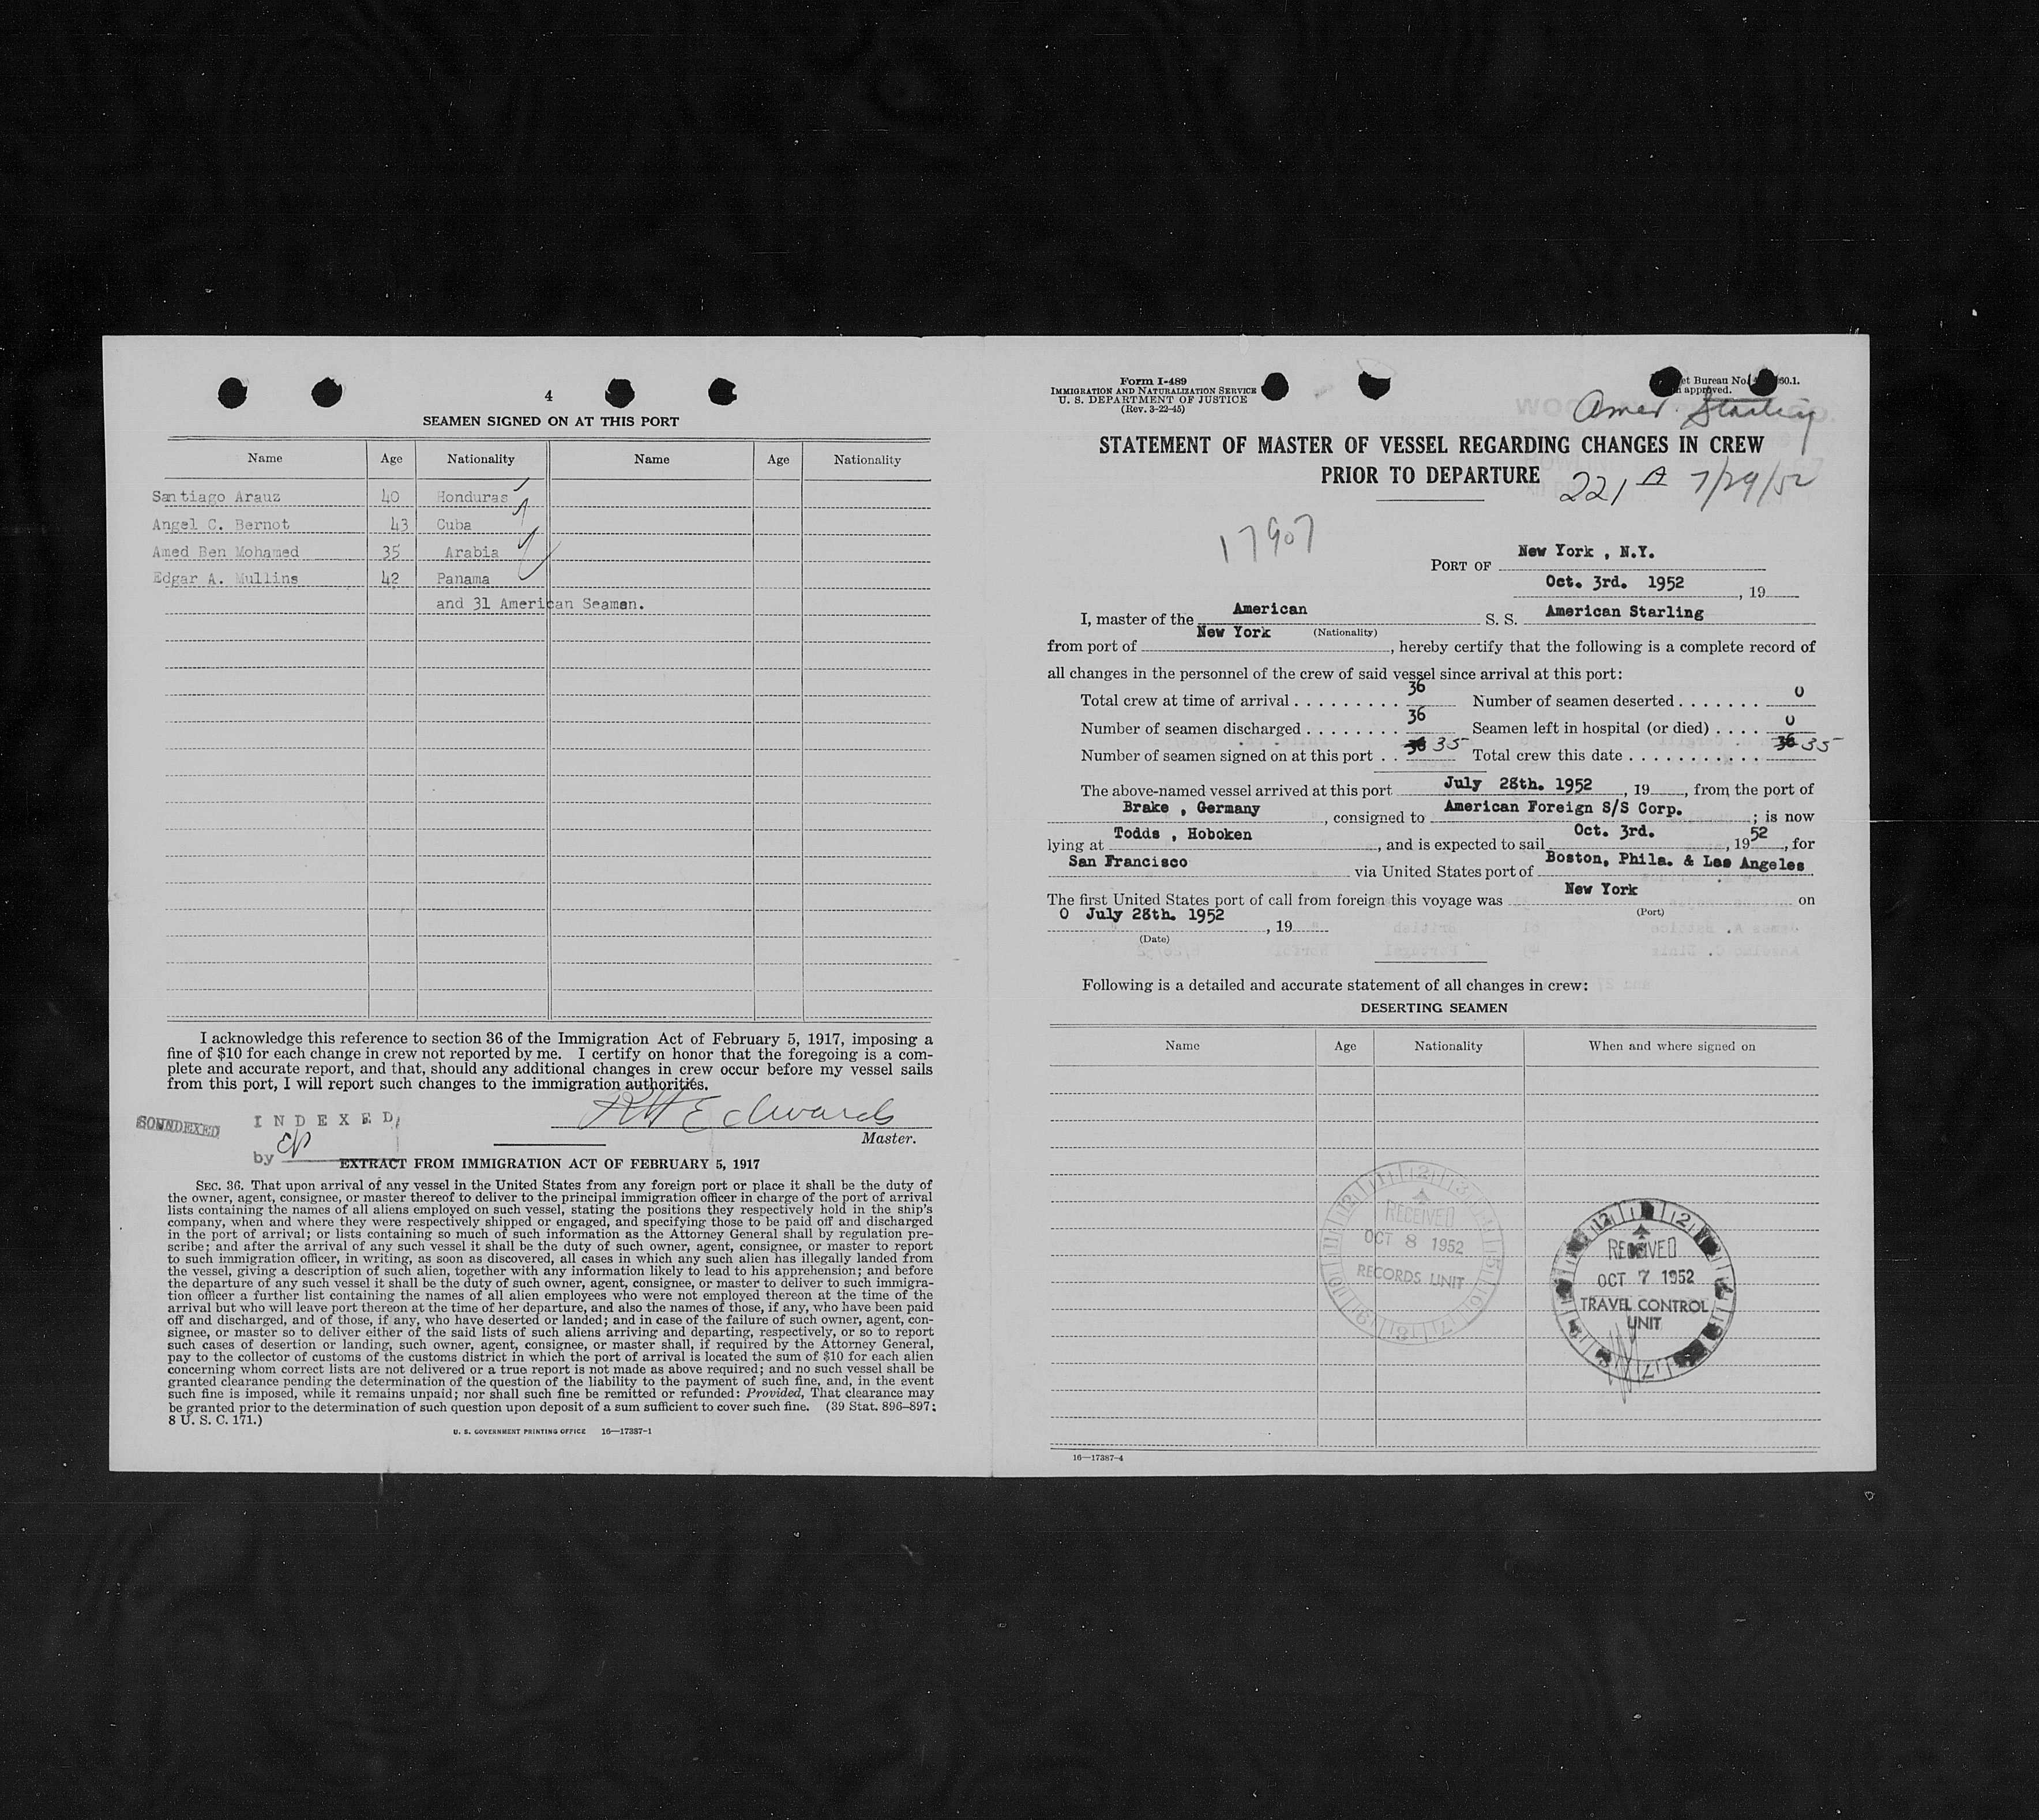 4
SEAMEN SIGNED ON AT THIS PORT
Name Age Nationality Name Age Nationality
Santiago Arauz 40 Honduras
Angel C. Bernot 43 Cuba
Amed Ben Mohamed 35 Arabia
Edgar A. Mullins 42 Panama
and 31 American Seaman.
I acknowledge this reference to section 36 of the Immigration Act of February 5, 1917, imposing a
fine of $10 for each change in crew not reported by me. I certify on honor that the foregoing is a com-
plete and accurate report, and that, should any additional changes in crew occur before my vessel sails
from this port, I will report such changes to the immigration authorities.
RH Edwards
Master.
SOUNDEXED
INDEXED
by
EXTRACT FROM IMMIGRATION ACT OF FEBRUARY 5, 1917
SEC. 36. That upon arrival of any vessel in the United States from any foreign port or place it shall be the duty of
the owner, agent, consignee, or master thereof to deliver to the principal immigration officer in charge of the port of arrival
lists containing the names of all aliens employed on such vessel, stating the positions they respectively hold in the ship's
company, when and where they were respectively shipped or engaged, and specifying those to be paid off and discharged
in the port of arrival; or lists containing so much of such information as the Attorney General shall by regulation pre-
scribe; and after the arrival of any such vessel it shall be the duty of such owner, agent, consignee, or master to report
to such immigration officer, in writing, as soon as discovered, all cases in which any such alien has illegally landed from
the vessel, giving a description of such alien, together with any information likely to lead to his apprehension; and before
the departure of any such vessel it shall be the duty of such owner, agent, consignee, or master to deliver to such immigra-
tion officer a further list containing the names of all alien employees who were not employed thereon at the time of the
arrival but who will leave port thereon at the time of her departure, and also the names of those, if any, who have been paid
off and discharged, and of those, if any, who have deserted or landed; and in case of the failure of such owner, agent, con-
signee, or master so to deliver either of the said lists of such aliens arriving and departing, respectively, or so to report
such cases of desertion or landing, such owner, agent, consignee, or master shall, if required by the Attorney General,
pay to the collector of customs of the customs district in which the port of arrival is located the sum of $10 for each alien
concerning whom correct lists are not delivered or a true report is not made as above required; and no such vessel shall be
granted clearance pending the determination of the question of the liability to the payment of such fine, and, in the event
such fine is imposed, while it remains unpaid; nor shall such fine be remitted or refunded: Provided, That clearance may
be granted prior to the determination of such question upon deposit of a sum sufficient to cover such fine. (39 Stat. 896–897;
8 U. S. C. 171.)
U. S. GOVERNMENT PRINTING OFFICE 16—17387-1
Form I-489
IMMIGRATION AND NATURALIZATION SERVICE
U. S. DEPARTMENT OF JUSTICE
(Rev. 3-22-45)
et Bureau No. 60.1.
approved.
Amer. Starling
STATEMENT OF MASTER OF VESSEL REGARDING CHANGES IN CREW
PRIOR TO DEPARTURE
221 A 7/29/52
17907
PORT OF New York , N.Y.
Oct. 3rd. 1952 , 19
I, master of the American S. S. American Starling
(Nationality)
from port of New York , hereby certify that the following is a complete record of
all changes in the personnel of the crew of said vessel since arrival at this port:
Total crew at time of arrival 36 Number of seamen deserted 0
Number of seamen discharged 36 Seamen left in hospital (or died) 0
Number of seamen signed on at this port 36 35 Total crew this date 36 35
The above-named vessel arrived at this port July 28th. 1952 , 19 , from the port of
Brake , Germany , consigned to American Foreign S/S Corp. ; is now
lying at Todds , Hoboken , and is expected to sail Oct. 3rd. , 1952 , for
San Francisco via United States port of Boston, Phila. & Los Angeles
The first United States port of call from foreign this voyage was New York on
(Port)
0 July 28th. 1952 , 19
(Date)
Following is a detailed and accurate statement of all changes in crew:
DESERTING SEAMEN
Name Age Nationality When and where signed on
RECEIVED
OCT 8 1952
RECORDS UNIT
RECEIVED
OCT 7 1952
TRAVEL CONTROL
UNIT
16—17387-4